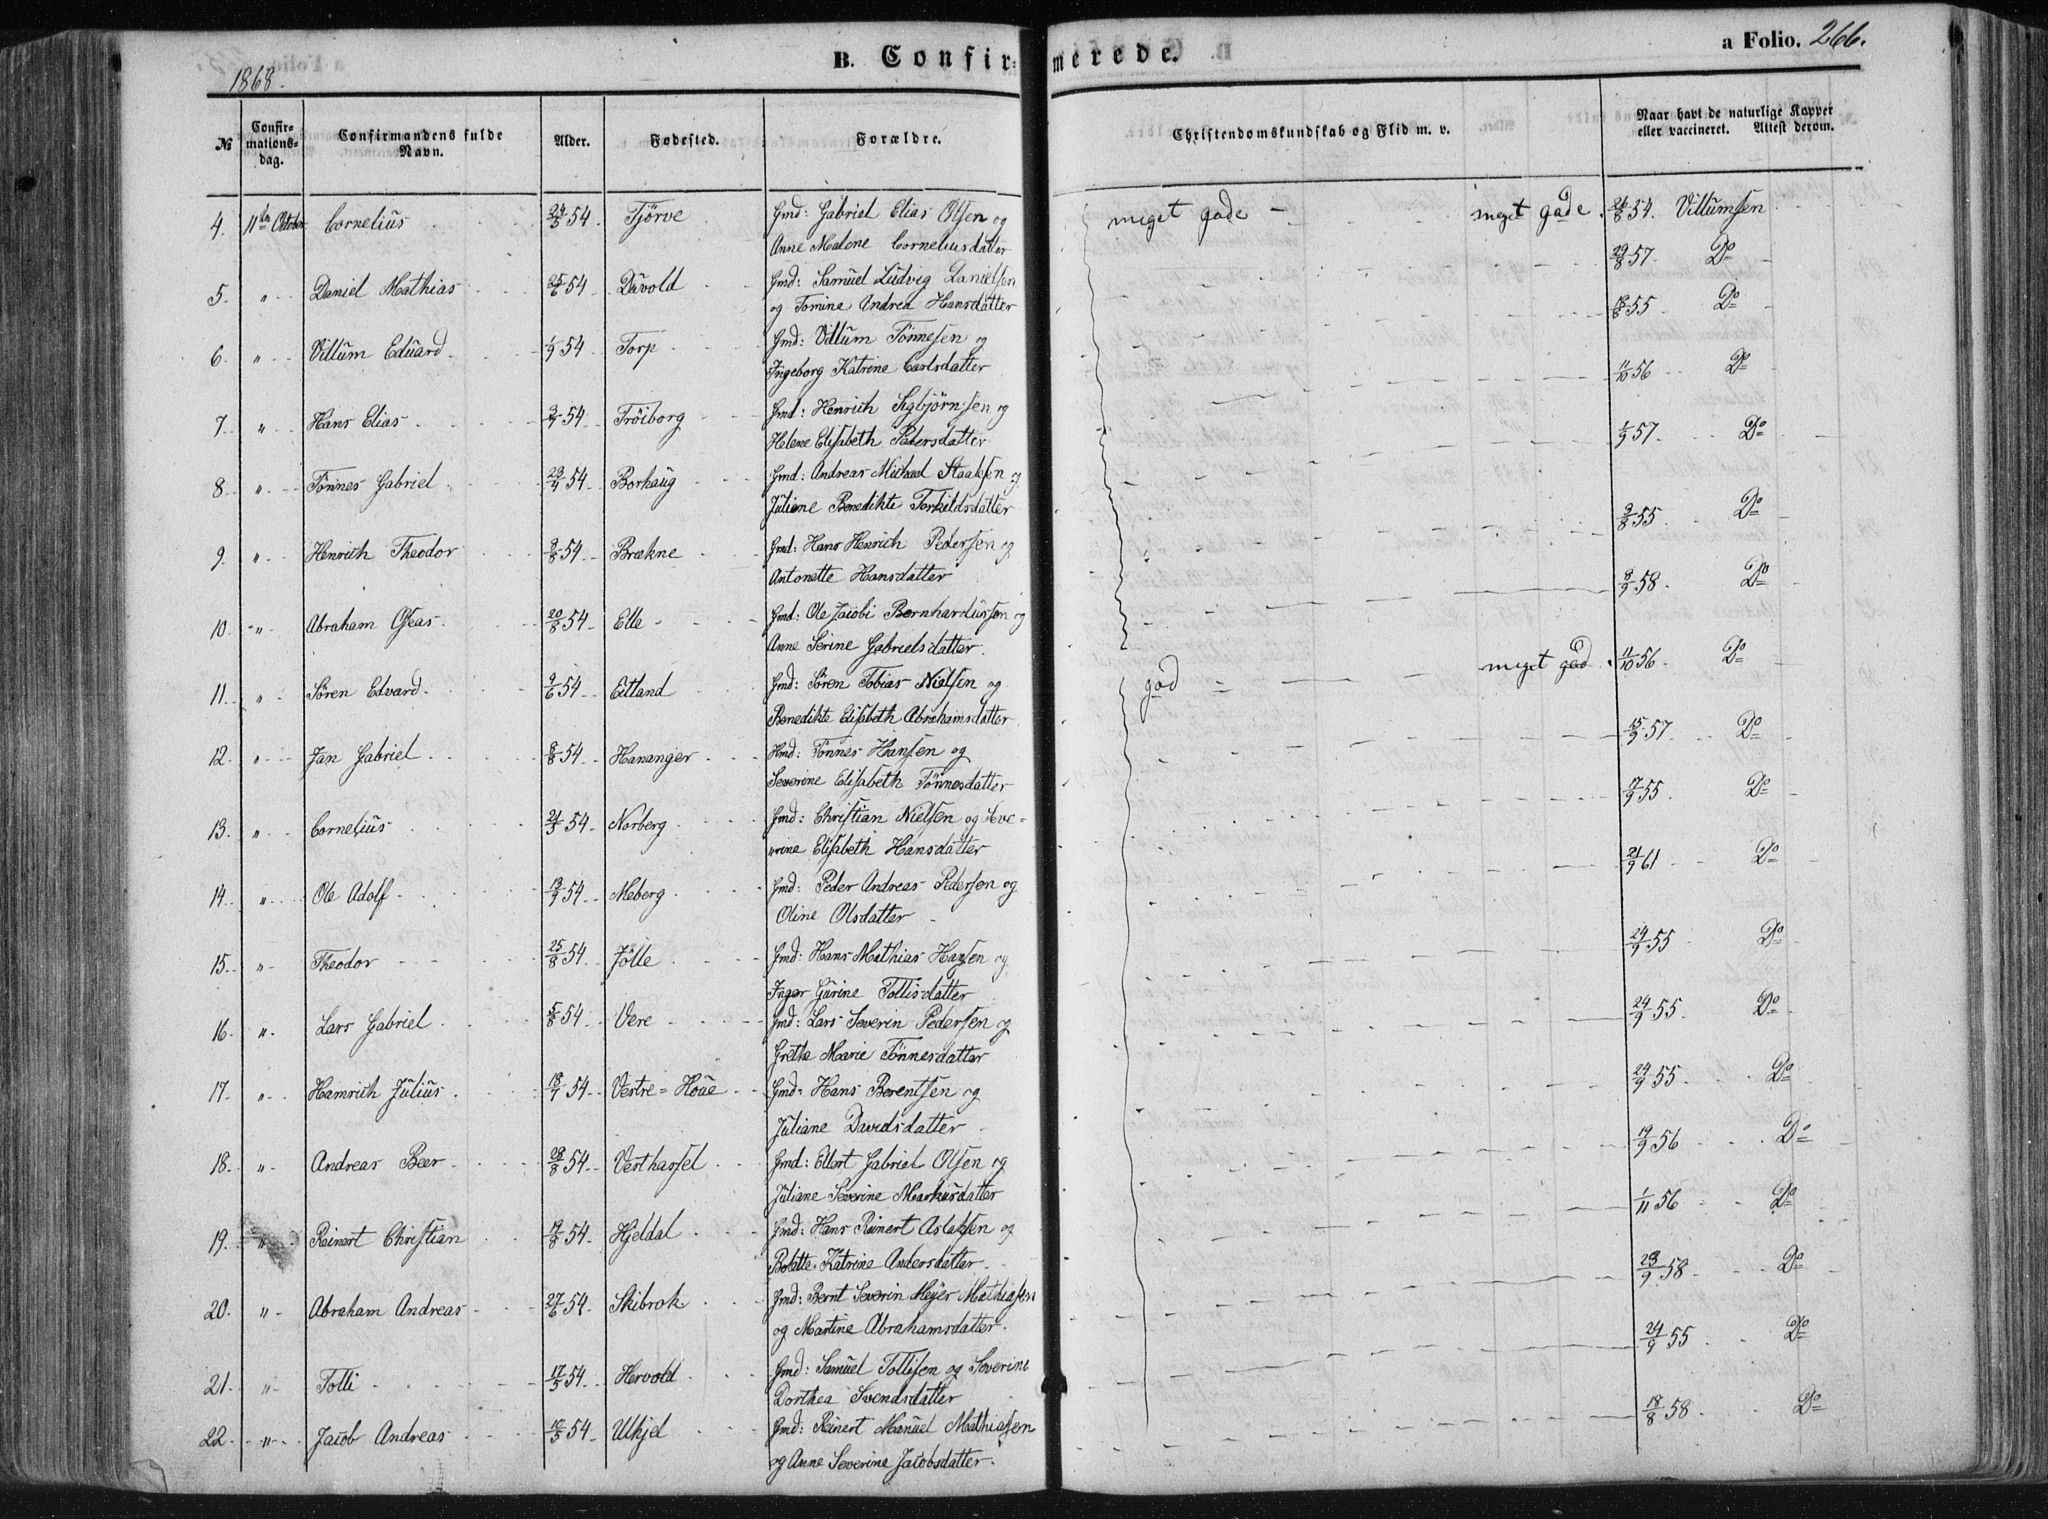 1868.
B. Confir=merede.
a Folio. 266.
№ Confirmations-dag. Confirmandens fulde Navn. Alder. Fødested. Forældre. Christendomskundskab og Flid m. v. Naar havt de naturlige Kopper eller vaccineret. Attest derom.
4. 11te October Cornelius 24/5 54. Tjörve Gmd: Gabriel Elias Olsen og meget gode - meget gode. 26/8 54. Villumsen
Anne Malene Corneliusdatter
5. " Daniel Mathias 25/6 54. Duvold Gmd: Samuel Ludvig Danielsen 29/8 57. Do
og Tomine Andrea Hansdatter
6. " Villum Eduard 1/9 54 Torp Gmd: Villum Tönnesen og 18/8 55 Do
Ingeborg Katrine Carlsdatter
7. " Hans Elias 3/7 54. Tröiborg Gmd: Henrich Sigbjörnsen og 11/10 56 Do
Helene Elisabeth Pedersdatter
8. " Tönnes Gabriel 29/4 54. Borhaug Gmd: Andreas Michael Staalesen og 1/9 57. Do
Juliane Benedikte Torkildsdatter
9. " Henrich Theodor 9/8 54. Brækne Gmd: Hans Henrich Pedersen og 9/8 55 Do
Antonette Hansdatter
10. " Abraham Oseas 20/8 54. Elle Gmd: Ole Jacobi Bernhardussen og 8/9 58. Do
Anne Serine Gabrielsdatter.
11. " Sören Edvard 9/6 54. Eitland Gmd: Sören Tobias Nielsen og god - meget god. 11/10 56. Do
Benedikte Elisabeth Abrahamsdatter
12. " Jan Gabriel 8/8 54 Hananger Hmd: Tönnes Hansen og 15/9 57. Do
Severine Elisabeth Tönnesdatter
13. " Cornelius 21/5 54. Norberg Gmd: Christian Nielsen og Seve- 17/9 55. Do
rine Elisabeth Hansdatter
14. " Ole Adolf 19/9 54. Meberg Gmd: Peder Andreas Pedersen og 21/9 61 Do
Oline Olsdatter
15. " Theodor 25/8 54. Jölle Gmd: Hans Mathias Hansen og 24/9 55 Do
Inger Gurine Tollisdatter
16. " Lars Gabriel 5/8 54. Vere Gmd: Lars Severin Pedersen og 24/9 55. Do
Grethe Marie Tönnesdatter
17. " Hamrich Julius 18/7 54. Vestre=Houe Gmd: Hans Berentsen og 24/9 55 Do
Juliane Davidsdatter
18. " Andreas Beer 28/8 54. Vesthassel Gmd: Ellert Gabriel Olsen og 19/9 56 Do
Juliane Severine Markusdatter
19. " Reinert Christian 19/8 54. Hjeldal Gmd: Hans Reinert Aslaksen og 1/11 56 Do
Bolette Katrine Andersdatter.
20. " Abraham Andreas 27/6 54. Skibrok Gmd: Bernt Severin Mejer Mathiasen 23/9 58 Do
og Martine Abrahamsdatter.
21. " Tolli 17/5 54. Hervold Gmd: Samuel Tollisen og Severine 24/9 55 Do
Dorthea Svendsdatter
22. " Jacob Andreas 10/5 54. Ulkjel Gmd: Reinert Manuel Mathiassen 18/8 58 Do
og Anne Severine Jacobsdatter.